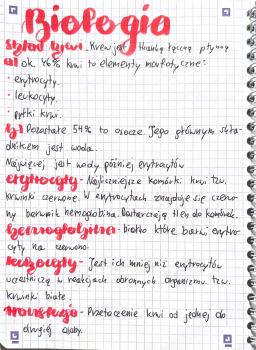 Biologia
Skład krwi - Krew jest tkanką łączną płynną
a) ok. 46% krwi to elementy morfotyczne:
• erytrocyty.
• leukocyty.
• płytki krwi.
b) Pozostałe 54% to osocze. Jego głównym skła-
dnikiem jest woda.
Najwięcej jest wody później erytrocytów
erytrocyty - Najliczniejsze komórki krwi tzw.
krwinki czerwone. W erytrocytach znajduje się czerwo-
ny barwnik hemoglobina. Dostarczają tlen do komórek.
hemoglobina - białko które barwi erytro-
cyty na czerwono.
leukocyty - Jest ich mniej niż erytrocytów
uczestniczą w reakcjach obronnych organizmu tzw.
krwinki białe.
transfuzja - Przetoczenie krwi od jednej do
drugiej osoby.